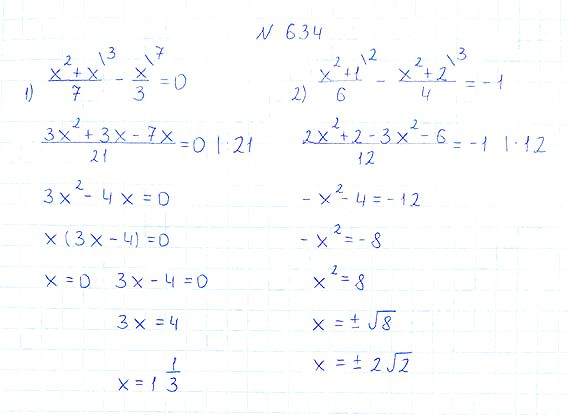 N 634
1) x²+x\3 / 7 - x\7 / 3 = 0
3x²+3x-7x / 21 = 0 | · 21
3x² - 4x = 0
x(3x-4) = 0
x = 0 3x-4 = 0
3x = 4
x = 1 1/3
2) x²+1\2 / 6 - x²+2\3 / 4 = -1
2x²+2-3x²-6 / 12 = -1 | · 12
-x²-4 = -12
-x² = -8
x² = 8
x = ± √8
x = ± 2√2